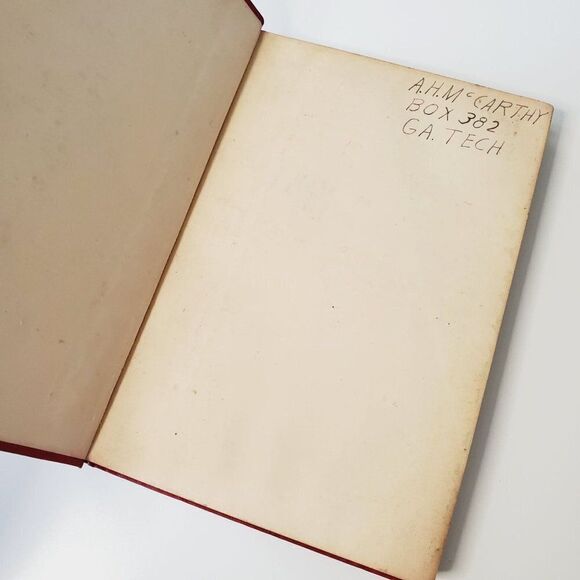 A.H.McCARTHY
BOX 382
GA. TECH